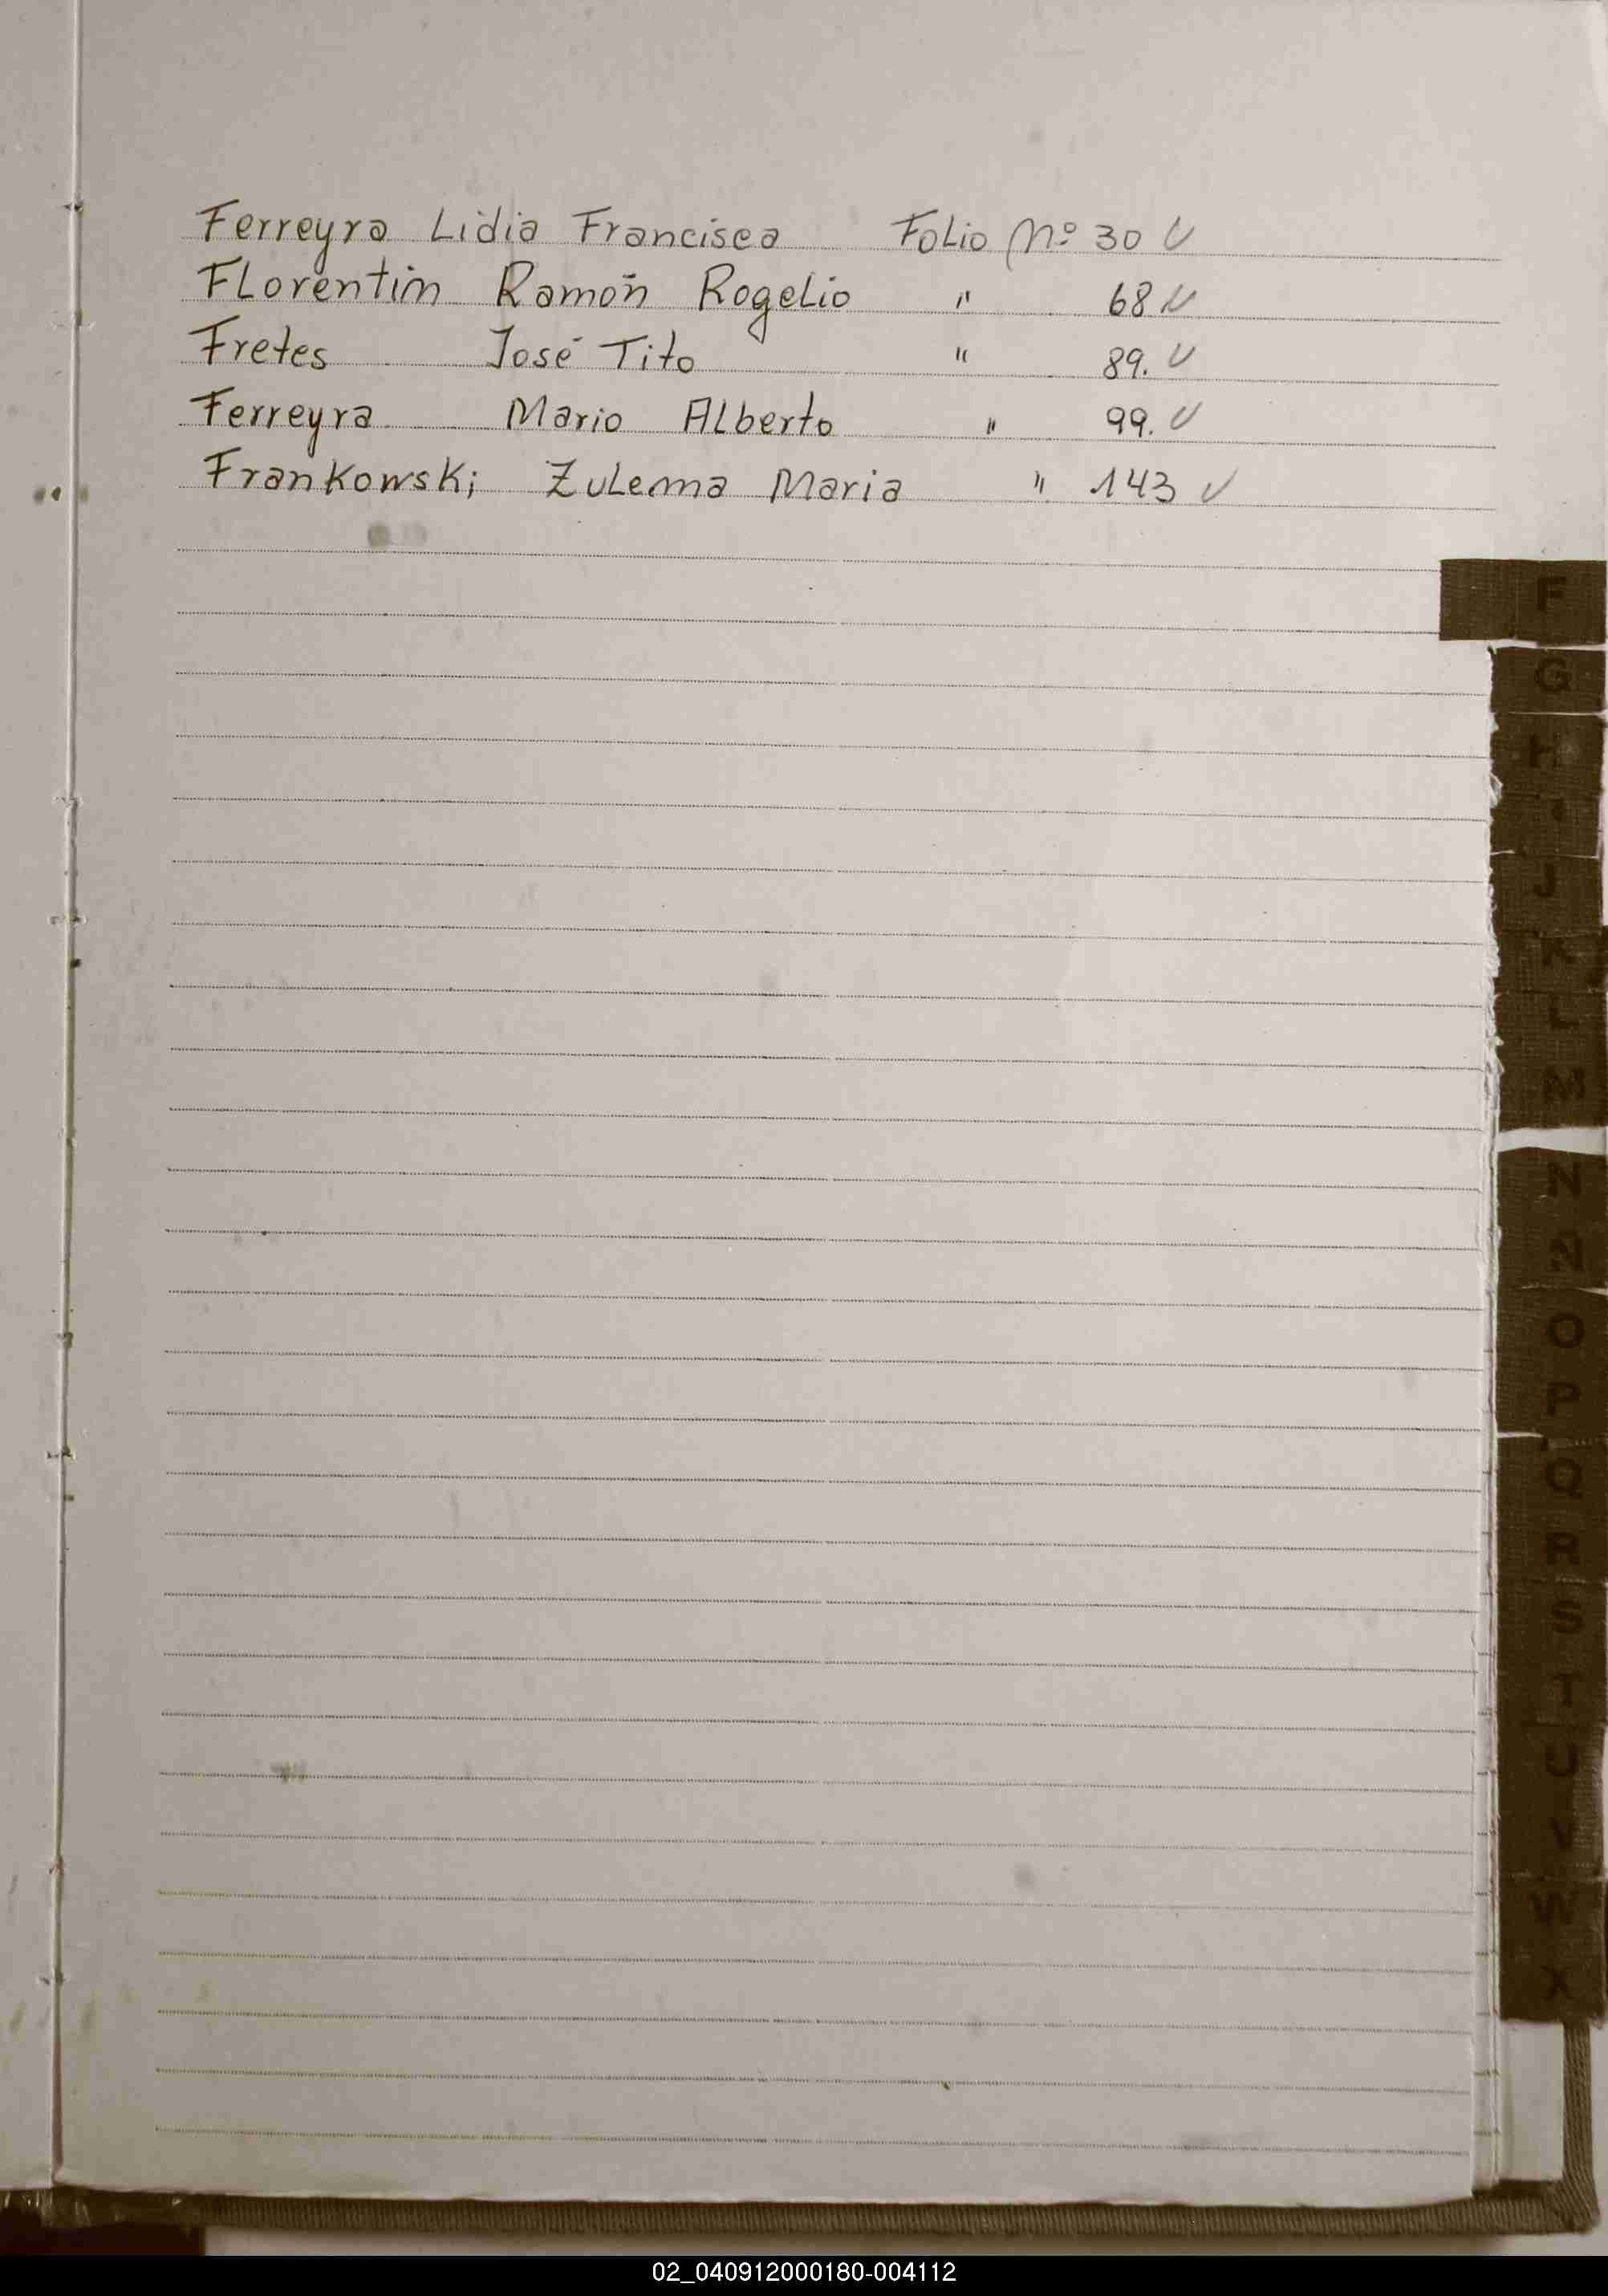 Ferreyra Lidia Francisca Folio Nº 30 ✓
Florentin Ramón Rogelio " 68 ✓
Fretes José Tito " 89. ✓
Ferreyra Mario Alberto " 99. ✓
Frankowski Zulema Maria " 143 ✓
F
G
H
I
J
K
L
M
N
Ñ
O
P
Q
R
S
T
U
V
W
X
02_040912000180-004112